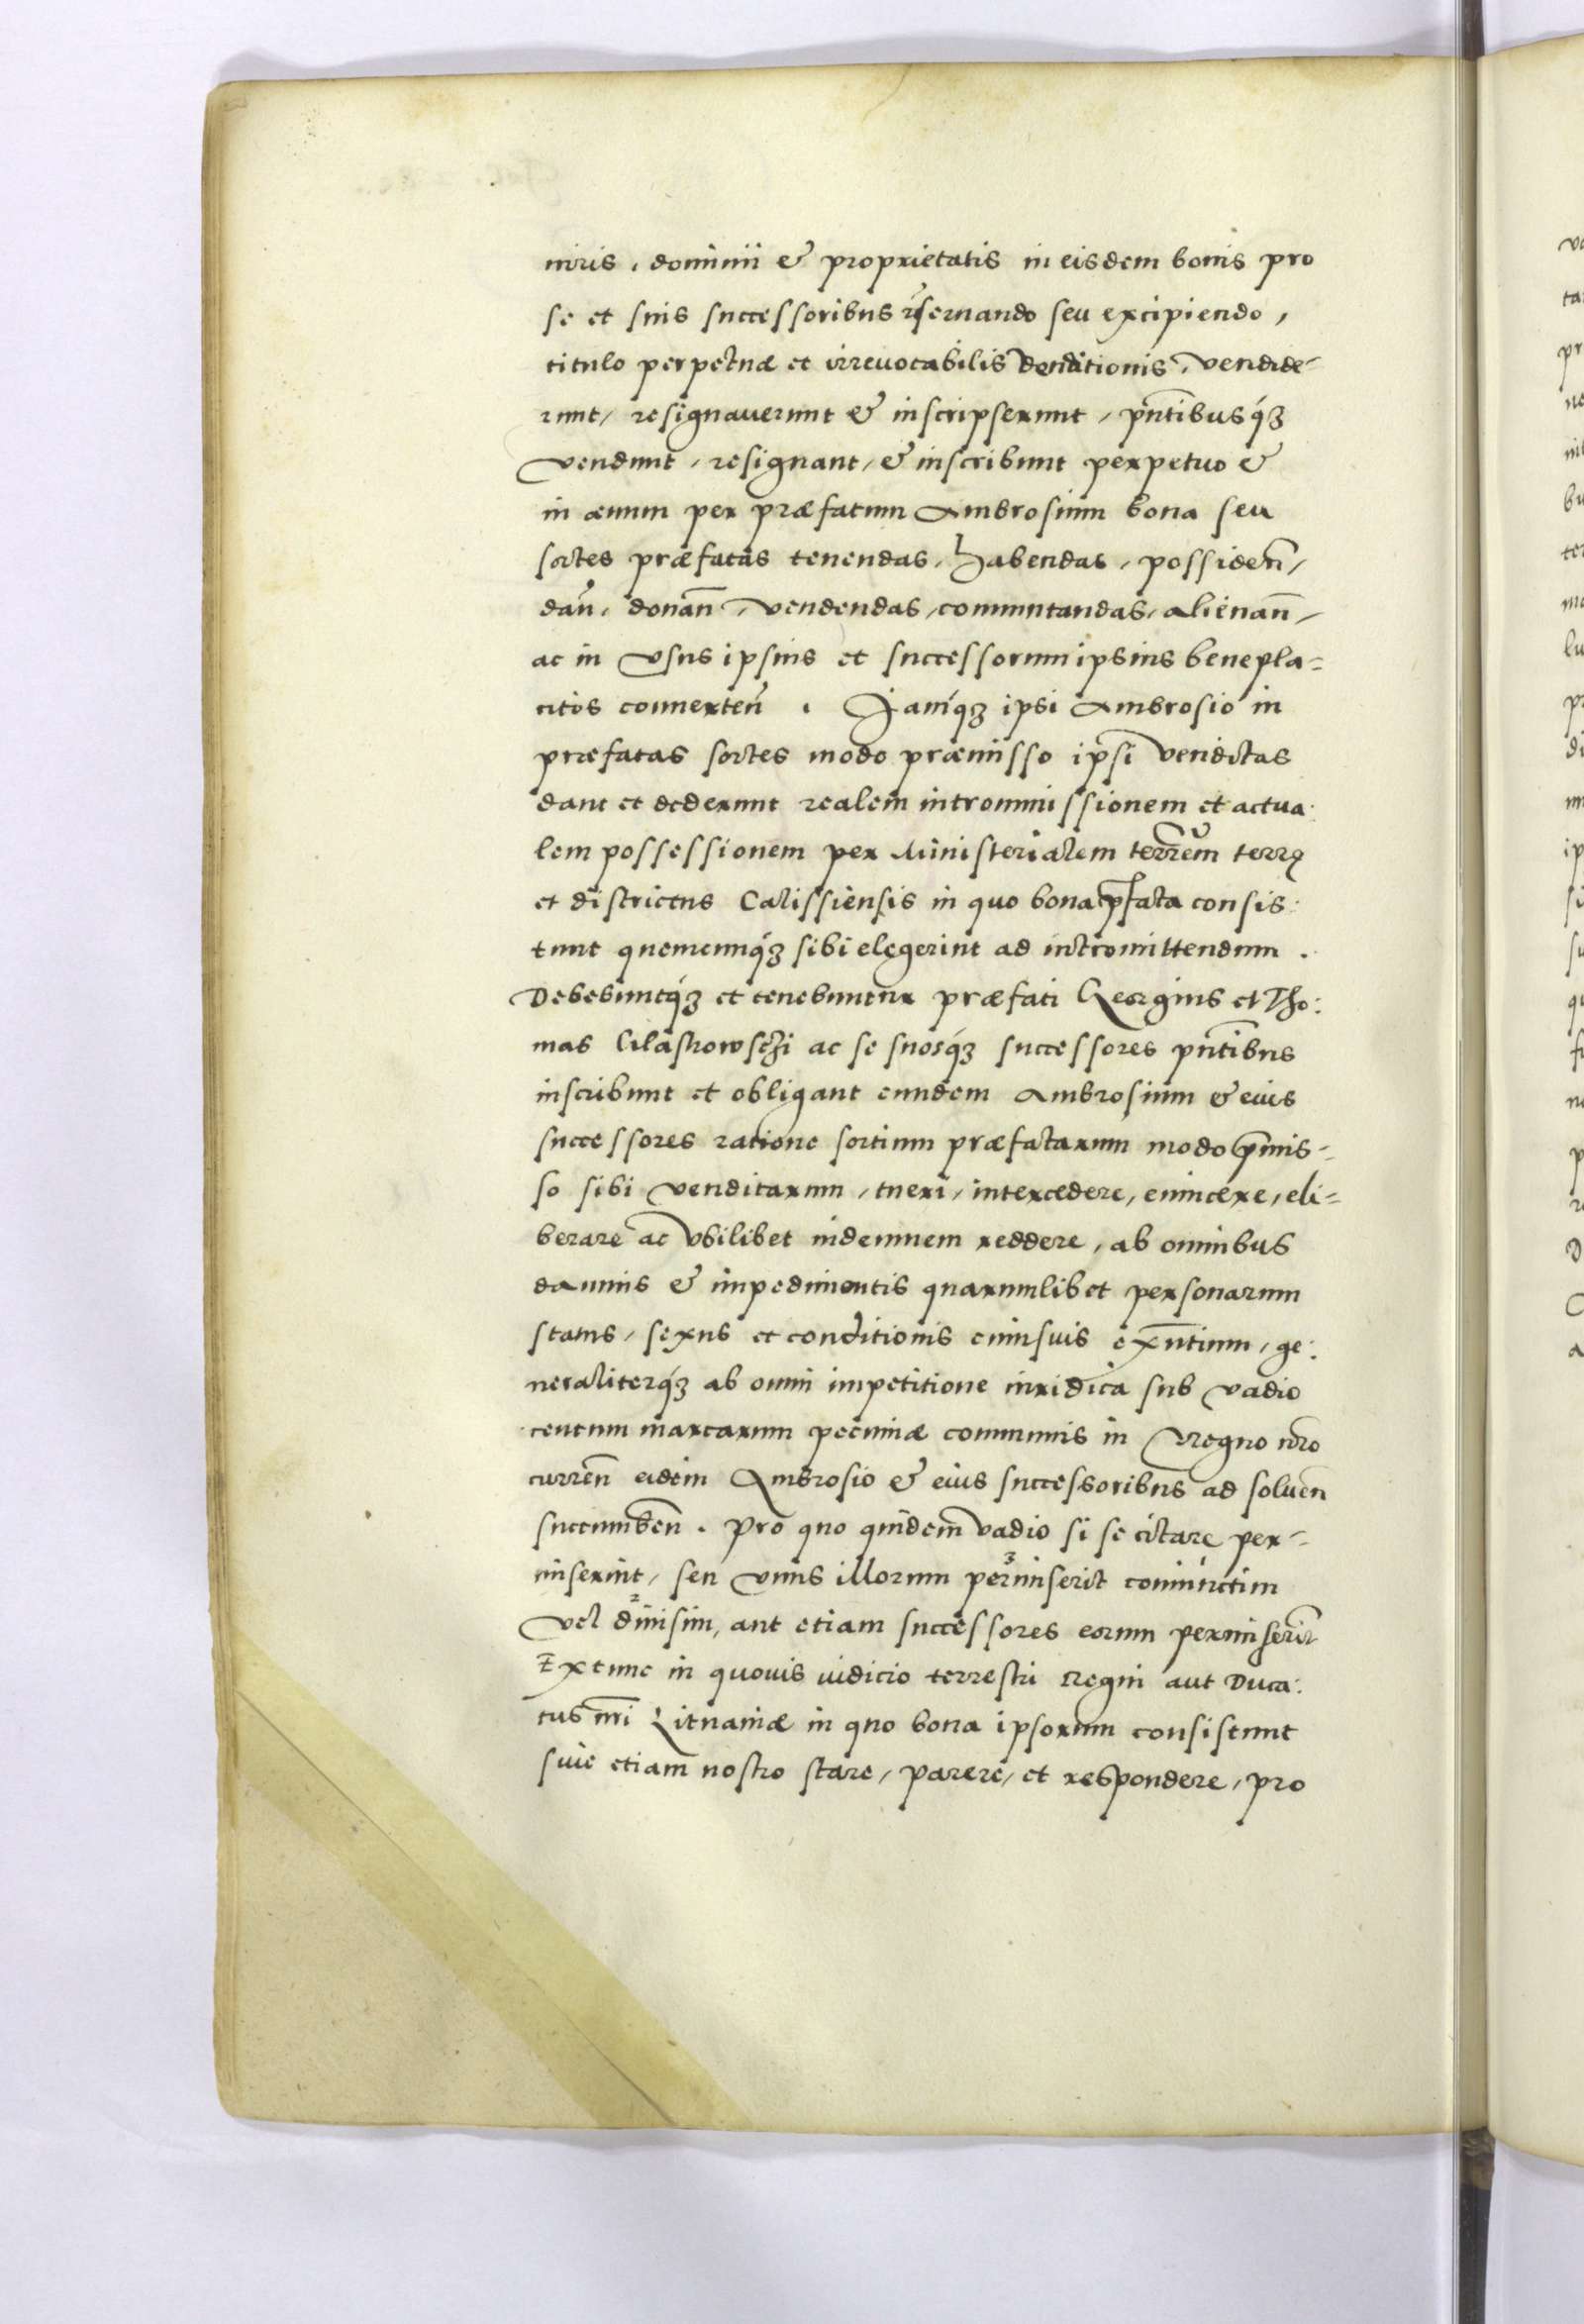 iuris, dominii & proprietatis in eisdem bonis pro
se et suis successoribus rẽseruando seu excipiendo,
titulo perpetuæ et irreuocabilis venditionis, vendide-
runt, resignauerunt & inscripserunt, pñtibusq́ꝫ
vendunt, resignant, & inscribunt perpetuo &
in æuum per præfatum Ambrosium bona seu
sortes præfatas tenendas, habendas, possideñ,
dañ, donañ, vendendas, commutandas, alienañ,
ac in vsus ipsius et successorum ipsius benepla-
citos conuerteñ. Iamq́ꝫ ipsi Ambrosio in
præfatas sortes modo præmisso ipsi venditas
dant et dederunt realem intromissionem et actua:
lem possessionem per Ministerialem terrẽm terrę
et districtus Calissiensis in quo bona p̃fata consis:
tunt quemcunq́ꝫ sibi elegerint ad intromittendum.
Debebuntq́ꝫ et tenebuntur præfati Georgius et Tho:
mas ac se suosq́ꝫ successores pñtibus
inscribunt et obligant eundem Ambrosium & eius
successores ratione sortium præfatarum modo p̃mis-
so sibi venditarum, tueri, intercedere, euincere, eli-
berare ac vbilibet indemnem reddere, ab omnibus
damnis & impedimentis quarumlibet personarum
status, sexus et conditionis cuiusuis exñtium, ge:
neraliterq́ꝫ ab omni impetitione iuridica sub vadio
centum marcarum pecuniæ communis in Regno nr̃o
curreñ eidem Ambrosio & eius successoribus ad solueñ
succumbeñ. Pro quo quidem vadio si se citare per-
miserint, seu vnus illorum permiserit coniunctim
vel diuisim, aut etiam successores eorum permiserit
Extunc in quouis iudicio terrestri Regni aut Duca:
tus nr̃i Lituaniæ in quo bona ipsorum consistunt
siue etiam nostro stare, parere, et respondere, pro